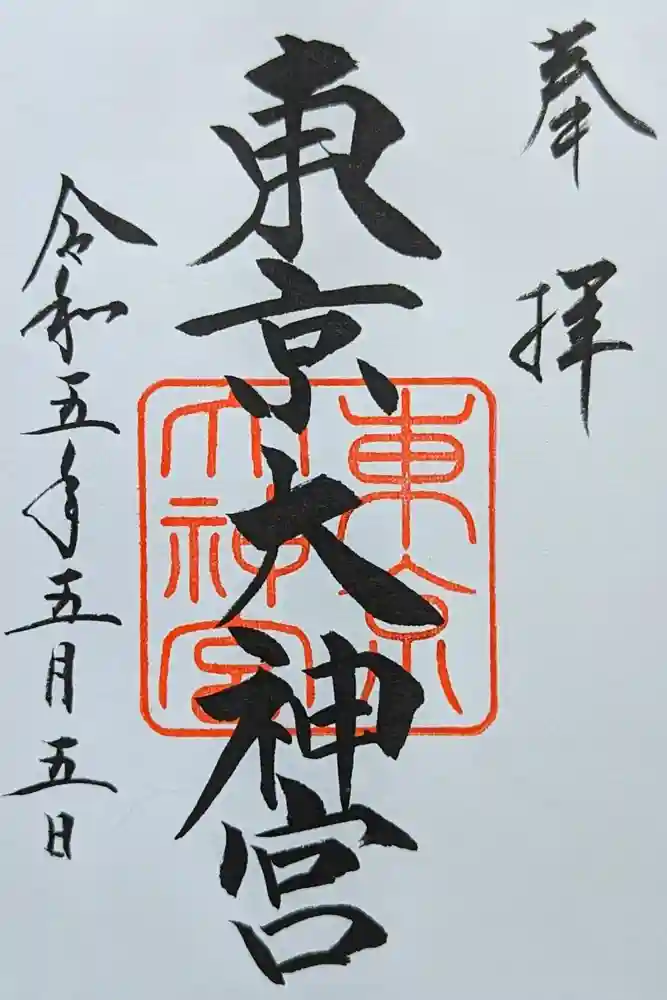 奉拝
東京大神宮
東京
大神宮
令和五年五月五日